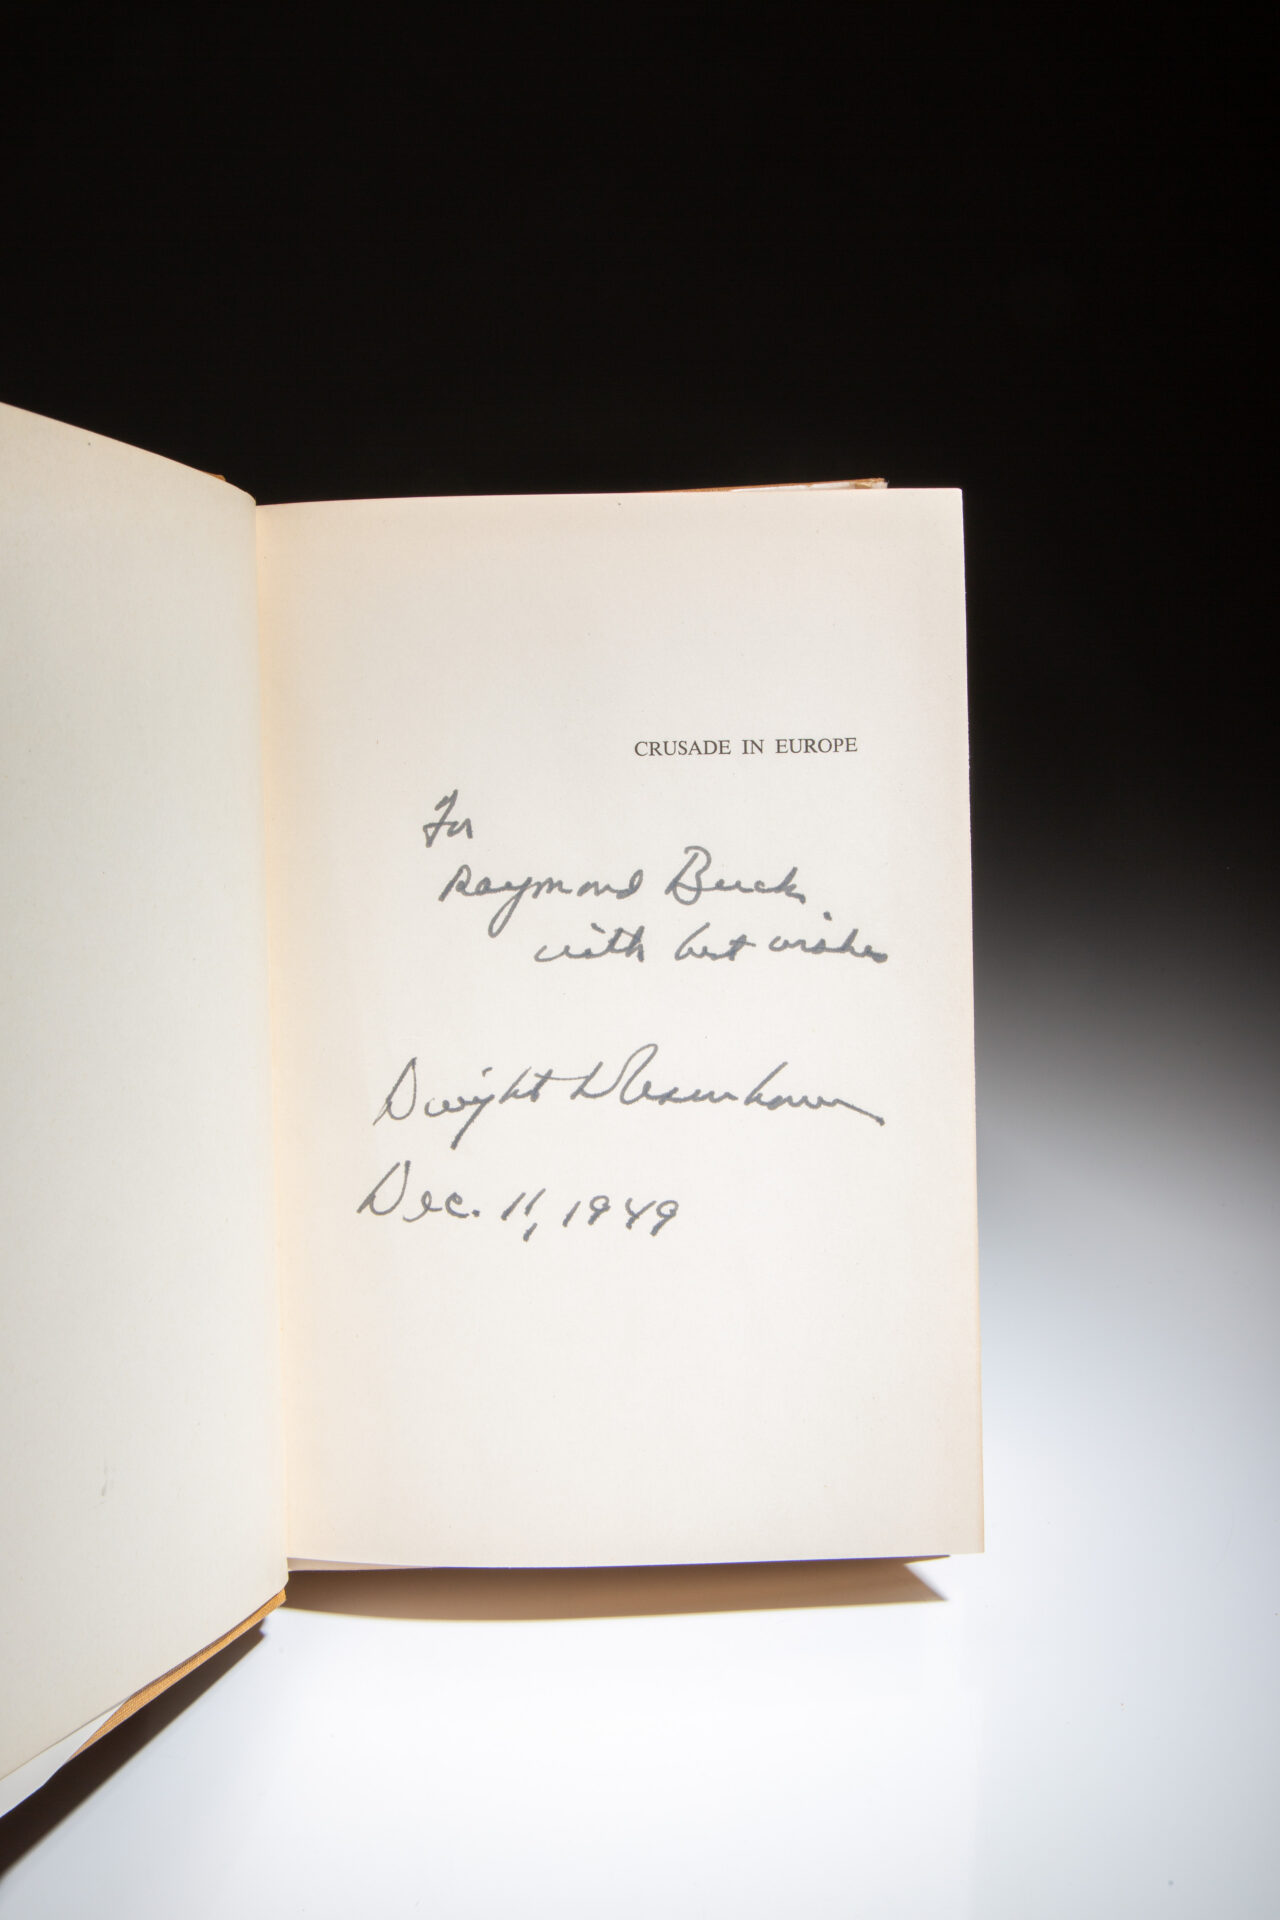 CRUSADE IN EUROPE
For
Raymond Buck
with best wishes
Dwight D Eisenhower
Dec. 11, 1949